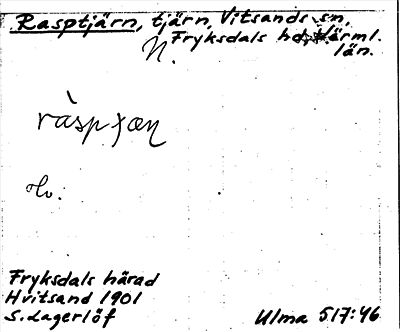 Rasptjärn, tjärn, Vitsands sn,
N. Fryksdals hd, Värml.
län.
Fryksdals härad
Hvitsand 1901
S. Lagerlöf
Ulma 517:46